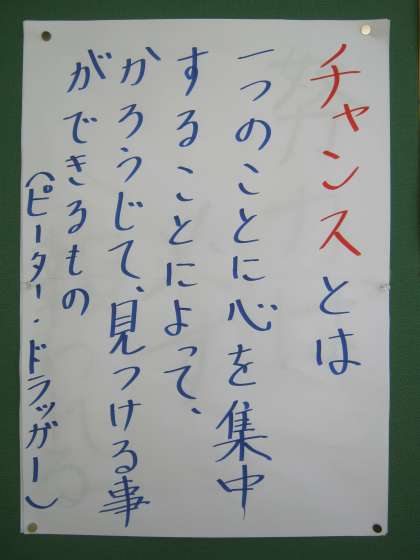 チャンスとは
一つのことに心を集中
することによって、
かろうじて、見つける事
ができるもの
(ピーター・ドラッガー)